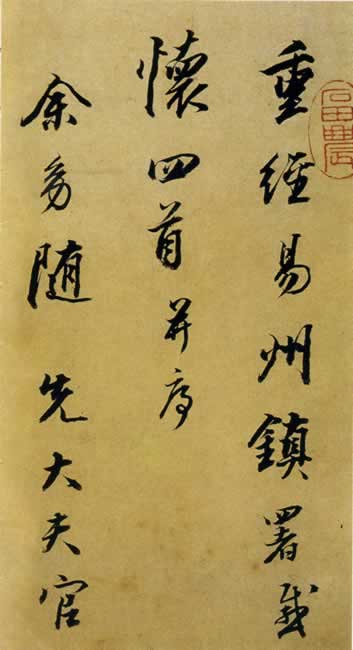 重經易州鎮署感
懷四首并序
余幼隨先大夫宦